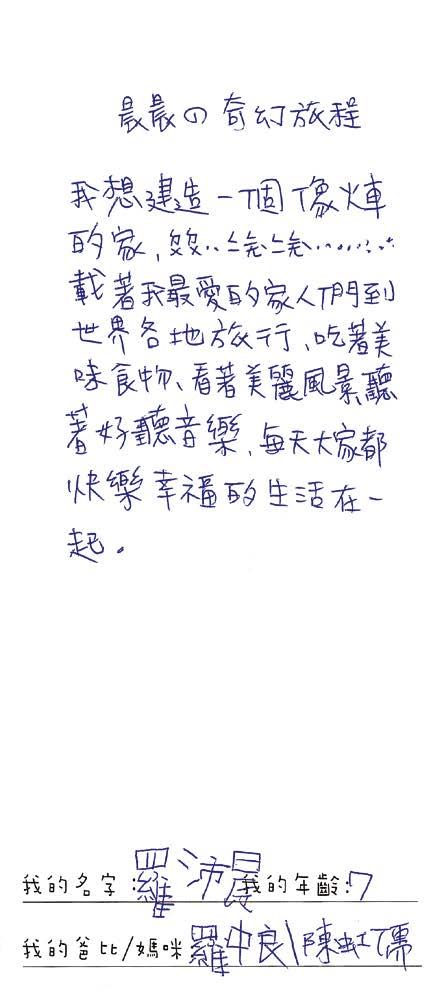 晨晨の奇幻旅程
我想建造一個像火車
的家、ㄉㄨㄉㄨ‥ㄑㄧㄤㄑㄧㄤ………
載著我最愛的家人們到
世界各地旅行、吃著美
味食物、看著美麗風景、聽
著好聽音樂、每天大家都
快樂幸福的生活在一
起。
我的名字:羅沛晨 我的年齡:7
我的爸比/媽咪 羅中良\陳虹儒